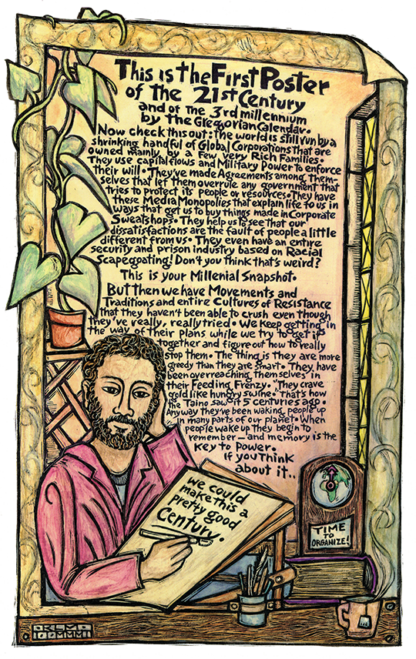 This is the First Poster
of the 21st Century
and of the 3rd millennium
by the Gregorian Calendar.
Now check this out: the world is still run by a
shrinking handful of Global Corporations that are
owned mainly by a Few very Rich Families.
They use capital floods and Military Power to enforce
their will. They've made Agreements among Them-
selves that let them overrule any government that
tries to protect its people or resources. They have
these Media Monopolies that explain life to us in
ways that get us to buy things made in Corporate
Sweatshops. They help us to see that our
dissatisfactions are the fault of people a little
different from us. They even have an entire
security and prison industry based on Racial
Scapegoating! Don't you think that's weird?
This is your Millenial Snapshot.
But then we have Movements and
Traditions and entire Cultures of Resistance
that they haven't been able to crush even though
they've really, really tried. We keep getting in
the way of their plans while we try to get it
together and figure out how to really
stop them. The thing is they are more
greedy than they are smart. They have
been overreaching themselves in
their Feeding Frenzy. "They crave
gold like hungry swine." That's how
the Taíno saw it 5 centuries ago.
Anyway they've been waking people up
in many parts of our planet. When
people wake up they begin to
remember—and memory is the
key to Power.
if you think
about it..
We could
make this a
pretty good
Century.
TIME
TO
ORGANIZE!
RLM